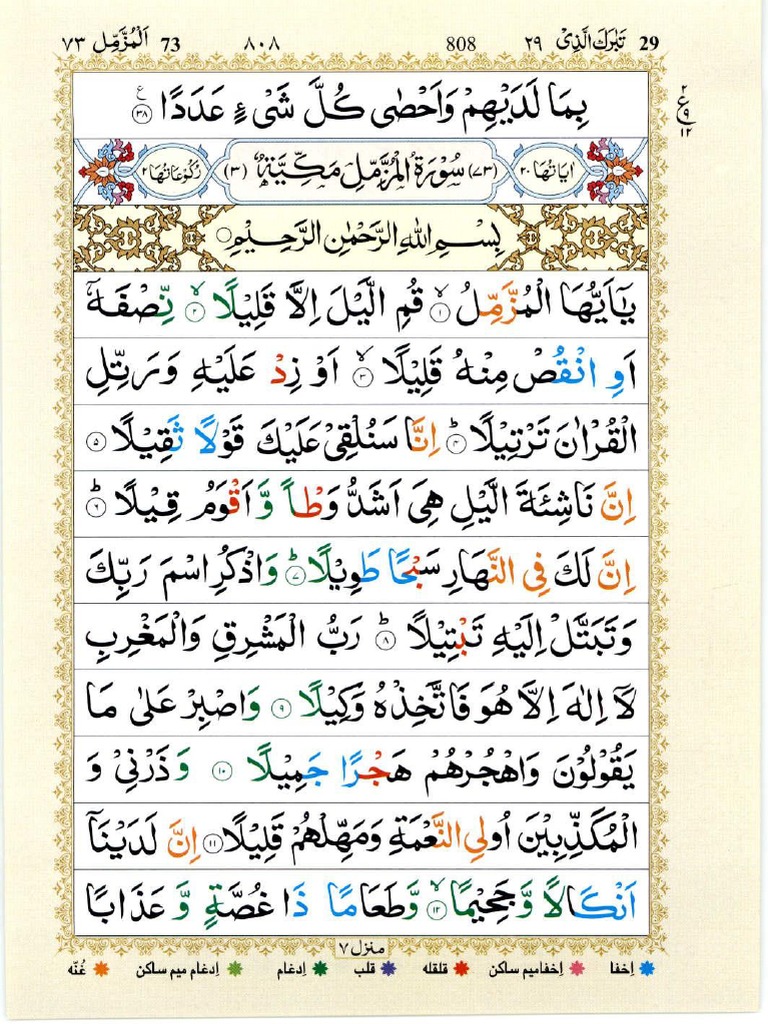 29 تَبٰرَكَ الَّذِیْ ٢٩ 808 ٨٠٨ 73 اَلْمُزَّمِّل ٧٣
بِمَا لَدَیْهِمْ وَاَحْصٰی كُلَّ شَیْءٍ عَدَدًا ۝٢٨ ع
٢
ع
٩
١٢
اٰیَاتُهَا ٢٠ (٧٣) سُوْرَةُ الْمُزَّمِّلِ مَكِّیَّةٌ (٣) رُكُوْعَاتُهَا ٢
بِسْمِ اللّٰهِ الرَّحْمٰنِ الرَّحِیْمِ
یٰۤاَیُّهَا الْمُزَّمِّلُ ۙ۝١ قُمِ الَّیْلَ اِلَّا قَلِیْلًا ۙ۝٢ نِّصْفَهٗۤ
اَوِ انْقُصْ مِنْهُ قَلِیْلًا ۙ۝٣ اَوْ زِدْ عَلَیْهِ وَرَتِّلِ
الْقُرْاٰنَ تَرْتِیْلًا ؕ۝٤ اِنَّا سَنُلْقِیْ عَلَیْكَ قَوْلًا ثَقِیْلًا ۝٥
اِنَّ نَاشِئَةَ الَّیْلِ هِیَ اَشَدُّ وَطْاً وَّاَقْوَمُ قِیْلًا ؕ۝٦
اِنَّ لَكَ فِی النَّهَارِ سَبْحًا طَوِیْلًا ؕ۝٧ وَاذْكُرِ اسْمَ رَبِّكَ
وَتَبَتَّلْ اِلَیْهِ تَبْتِیْلًا ؕ۝٨ رَبُّ الْمَشْرِقِ وَالْمَغْرِبِ
لَاۤ اِلٰهَ اِلَّا هُوَ فَاتَّخِذْهُ وَكِیْلًا ۝٩ وَاصْبِرْ عَلٰی مَا
یَقُوْلُوْنَ وَاهْجُرْهُمْ هَجْرًا جَمِیْلًا ۝١٠ وَذَرْنِیْ وَ
الْمُكَذِّبِیْنَ اُولِی النَّعْمَةِ وَمَهِّلْهُمْ قَلِیْلًا ۝١١ اِنَّ لَدَیْنَاۤ
اَنْكَالًا وَّجَحِیْمًا ۙ۝١٢ وَّطَعَامًا ذَا غُصَّةٍ وَّعَذَابًا
منزل ٧
اِخفا اِخفامیم ساکن قلقله قلب اِدغام اِدغام میم ساکن غُنّه